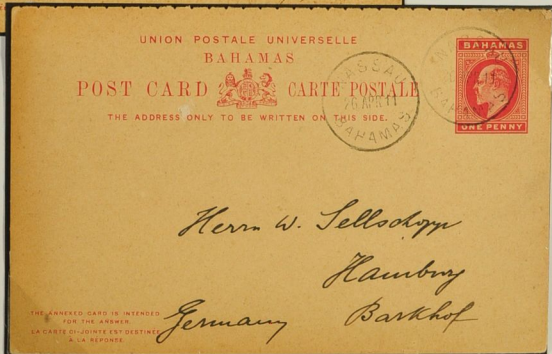 UNION POSTALE UNIVERSELLE
BAHAMAS
POST CARD CARTE POSTALE
THE ADDRESS ONLY TO BE WRITTEN ON THIS SIDE.
NASSAU
26 APR 11
BAHAMAS
BAHAMAS
ONE PENNY
Herrn W. Sellschopp
Hamburg
Barkhof
Germany
THE ANNEXED CARD IS INTENDED
FOR THE ANSWER.
LA CARTE CI-JOINTE EST DESTINÉE
À LA RÉPONSE